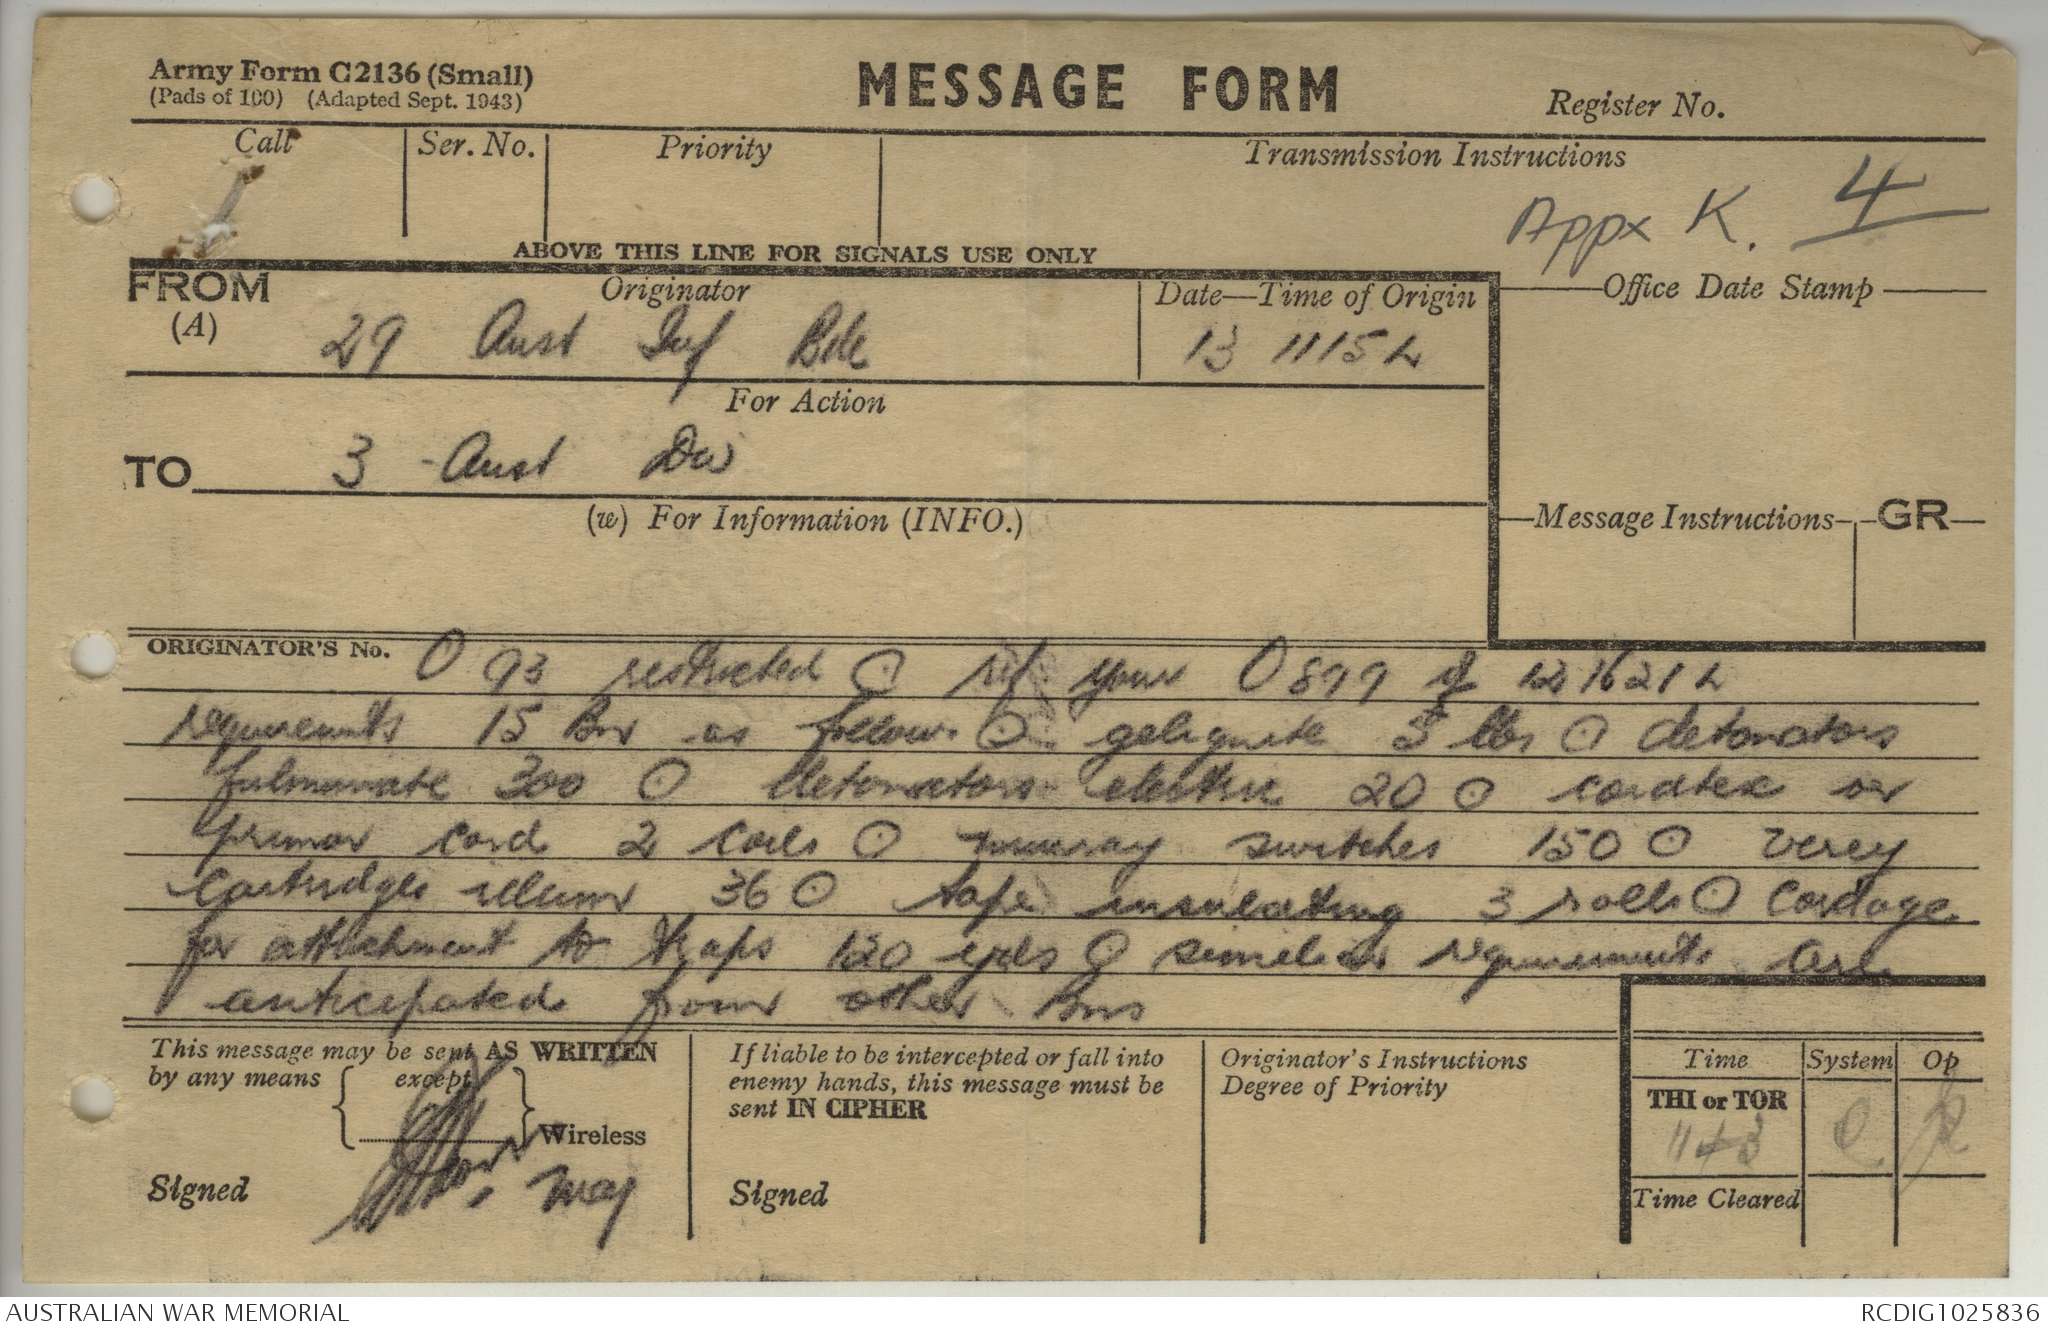 Army Form C2136 (Small)
(Pads of 100) (Adapted Sept. 1943)
MESSAGE FORM
Register No.
Call
Ser. No.
Priority
Transmission Instructions
Appx K. 4
ABOVE THIS LINE FOR SIGNALS USE ONLY
FROM
(A)
Originator
29 Aust Inf Bde
Date—Time of Origin
13 1115 L
Office Date Stamp
For Action
TO
3 Aust Div
(w) For Information (INFO.)
Message Instructions
GR
ORIGINATOR'S No.
O 93 restricted ⊙ ref your O 899 of 121621 L
requirements 15 Bn as follows ⊙ gelignite 5 lbs ⊙ detonators
fulminate 300 ⊙ detonators electric 20 ⊙ cordtex or
primer cord 2 coils ⊙ murray switches 150 ⊙ verey
cartridges illum 36 ⊙ tape insulating 3 rolls ⊙ cordage
for attachment to traps 120 yds ⊙ similar requirements are
anticipated from other Bns
This message may be sent AS WRITTEN
by any means except
Wireless
Signed
Maj
If liable to be intercepted or fall into
enemy hands, this message must be
sent IN CIPHER
Signed
Originator's Instructions
Degree of Priority
Time
System
Op
THI or TOR
1143
Time Cleared
AUSTRALIAN WAR MEMORIAL
RCDIG1025836